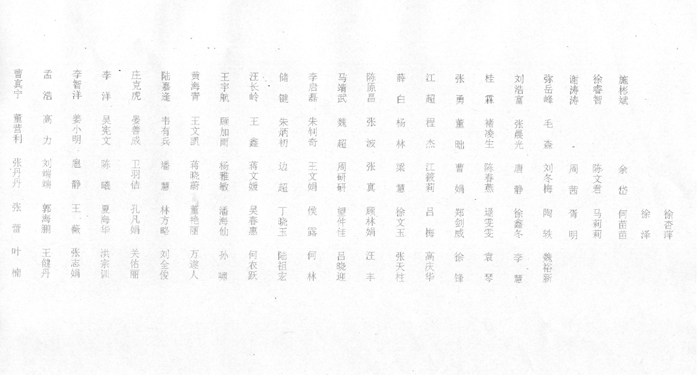 徐 萍
徐泽
施彬斌 余岱 何苗苗
徐睿智 陈文君 马莉莉
谢涛涛 周茜 胥明
弥岳峰 毛森 刘冬梅 陶轶 魏裕新
刘浩富 张晨光 唐静 徐鑫冬 李慧
桂霖 褚凌生 陈春燕 雯雯 袁琴
张勇 董础 曹娟 郑剑威 徐锋
江超 程杰 江筱莉 吕梅 高庆华
薛白 杨林 梁慧 徐文玉 张天柱
陈原昌 张波 张真 顾林娟 汪丰
马靖武 魏超 周研研 望仲佳 吕晓迎
李启磊 朱轲奇 王文娟 侯露 何林
储键 朱炳初 边超 丁晓玉 陆祖宏
汪长岭 王鑫 蒋文媛 吴春惠 何农跃
王宇航 顾加雨 杨雅敏 潘海仙 孙啸
黄海青 王文凯 蒋晓蔚 董艳丽 万遂人
陆嘉逢 韦有兵 潘慧 林方略 刘全俊
庄克虎 姜善成 卫羽佶 孔凡娟 关佑丽
李洋 吴宪文 陈曦 夏海华 洪宗训
李智洋 姜小明 扈静 王薇 张志娟
孟浩 高力 刘端端 郭海鹏 王健丹
曹真宁 董营利 张丹丹 张蕾 叶楠